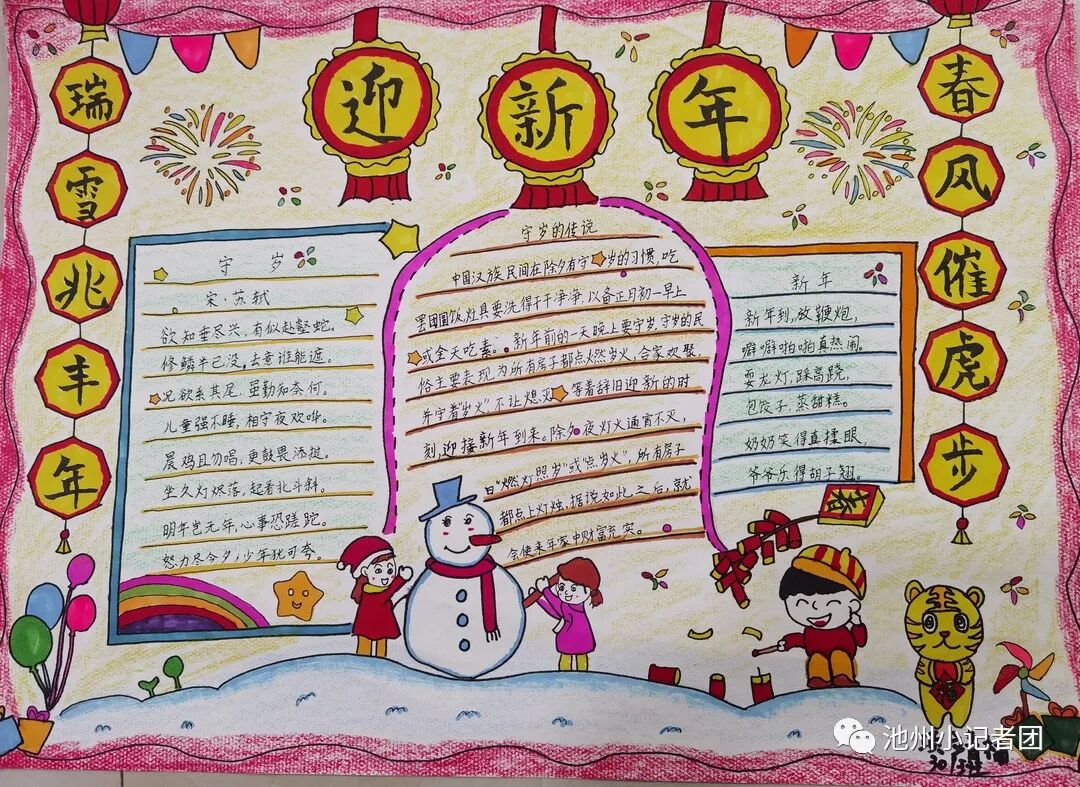 迎新年
瑞雪兆丰年
春风催虎步
守岁
宋·苏轼
欲知垂尽兴,有似赴壑蛇。
修鳞半已没,去意谁能遮。
况欲系其尾,虽勤知奈何。
儿童强不睡,相守夜欢哗。
晨鸡且勿唱,更鼓畏添挝。
坐久灯烬落,起看北斗斜。
明年岂元年,心事恐蹉跎。
努力尽今夕,少年犹可夸。
守岁的传说
中国汉族民间在除夕有守岁的习惯,吃
罢团圆饭,灶具要洗得干干净净,以备正月初一早上
或全天吃素。新年前的一天晚上要守岁,守岁的民
俗主要表现为所有房子都点燃岁火,合家欢聚,
并守着“岁火”不让熄灭,等着辞旧迎新的时
刻,迎接新年到来。除夕夜灯火通宵不灭,
曰“燃灯照岁”或“点岁火”,所有房子
都点上灯烛,据说如此之后,就
会使来年家中财富充实。
新年
新年到,放鞭炮,
噼噼啪啪真热闹。
耍龙灯,踩高跷,
包饺子,蒸甜糕。
奶奶笑得直揉眼,
爷爷乐得胡子翘。
春
王
福
池州小记者团
301班